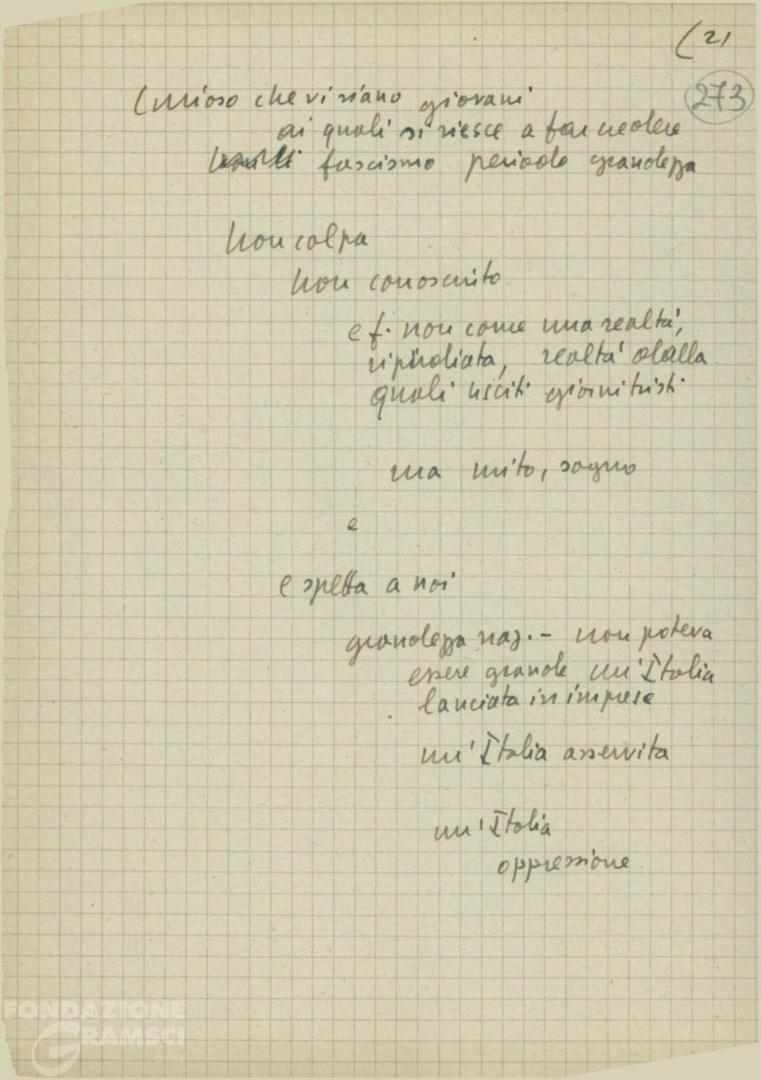 (2)
273
Curioso che vi siano giovani
ai quali si riesce a far credere
fascismo periodo grandezza
Non colpa
Non conosciuto
e f. non come una realtà,
ripudiata, realtà dalla
quali usciti giorni tristi
ma mito, sogno
e
e spetta a noi
grandezza naz. - non poteva
essere grande un'Italia
lanciata in imprese
un'Italia asservita
un'Italia
oppressione
FONDAZIONE
GRAMSCI
onlus